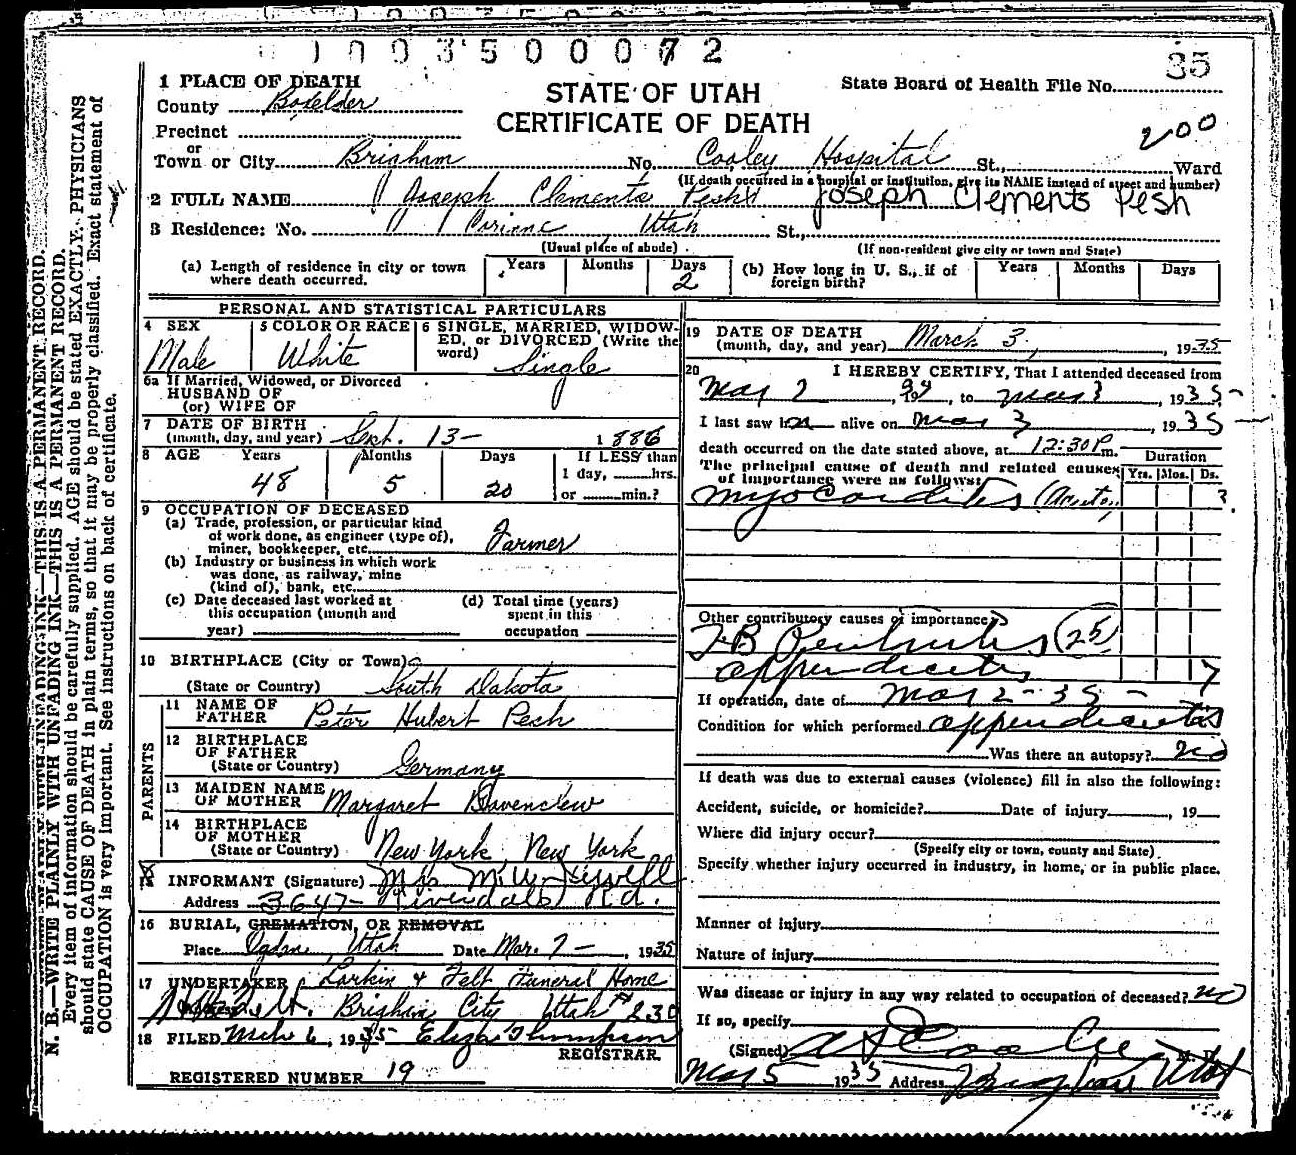 1003500072
35
1 PLACE OF DEATH
County Boxelder
STATE OF UTAH
State Board of Health File No.
CERTIFICATE OF DEATH
Precinct
200
or
Town or City Brigham No. Cooley Hospital St., Ward
(If death occurred in a hospital or institution, give its NAME instead of street and number)
2 FULL NAME Joseph Clements Pesh Joseph Clements Pesh
3 Residence: No. Corinne Utah St.,
(Usual place of abode) (If non-resident give city or town and State)
(a) Length of residence in city or town where death occurred. Years Months Days 2
(b) How long in U. S., if of foreign birth? Years Months Days
PERSONAL AND STATISTICAL PARTICULARS
4 SEX Male
5 COLOR OR RACE White
6 SINGLE, MARRIED, WIDOWED, or DIVORCED (Write the word) Single
6a If Married, Widowed, or Divorced
HUSBAND OF
(or) WIFE OF
7 DATE OF BIRTH
(month, day, and year) Sept. 13- 1886
8 AGE Years Months Days If LESS than
48 5 20 1 day, hrs.
or min.?
9 OCCUPATION OF DECEASED
(a) Trade, profession, or particular kind
of work done, as engineer (type of),
miner, bookkeeper, etc. Farmer
(b) Industry or business in which work
was done, as railway, mine
(kind of), bank, etc.
(c) Date deceased last worked at
this occupation (month and
year)
(d) Total time (years)
spent in this
occupation
10 BIRTHPLACE (City or Town)
(State or Country) South Dakota
PARENTS
11 NAME OF
FATHER Peter Hubert Pesh
12 BIRTHPLACE
OF FATHER
(State or Country) Germany
13 MAIDEN NAME
OF MOTHER Margaret
14 BIRTHPLACE
OF MOTHER
(State or Country) New York, New York
INFORMANT (Signature) Mrs M. W.
Address 3647 Riverdale Rd.
16 BURIAL, CREMATION, OR REMOVAL
Place Ogden, Utah Date Mar. 7- , 1935
17 UNDERTAKER Larkin & Felt Funeral Home
Brigham City Utah # 230
18 FILED Mch 6, 1935 Eliza Thompson
REGISTRAR
REGISTERED NUMBER 19
19 DATE OF DEATH
(month, day, and year) March 3, , 1935
20 I HEREBY CERTIFY, That I attended deceased from
Mar 2 , 19 , to Mar 3 , 1935-
I last saw him alive on Mar 3 , 1935-
death occurred on the date stated above, at 12:30 P. m.
The principal cause of death and related causes
of importance were as follows: Duration
Yrs. Mos. Ds.
Myocarditis (Acute) 2.
Other contributory causes of importance:
TB Peritonitis (25)
appendicitis 7
If operation, date of Mar 2-35-
Condition for which performed appendicitis
Was there an autopsy? no
If death was due to external causes (violence) fill in also the following:
Accident, suicide, or homicide? Date of injury , 19
Where did injury occur?
(Specify city or town, county and State)
Specify whether injury occurred in industry, in home, or in public place.
Manner of injury
Nature of injury
Was disease or injury in any way related to occupation of deceased? no
If so, specify
(Signed) Cooley
Mar 5 1935 Address Brigham Utah
N. B.—WRITE PLAINLY WITH UNFADING INK—THIS IS A PERMANENT RECORD.
Every item of information should be carefully supplied. AGE should be stated EXACTLY. PHYSICIANS
should state CAUSE OF DEATH in plain terms, so that it may be properly classified. Exact statement of
OCCUPATION is very important. See instructions on back of certificate.